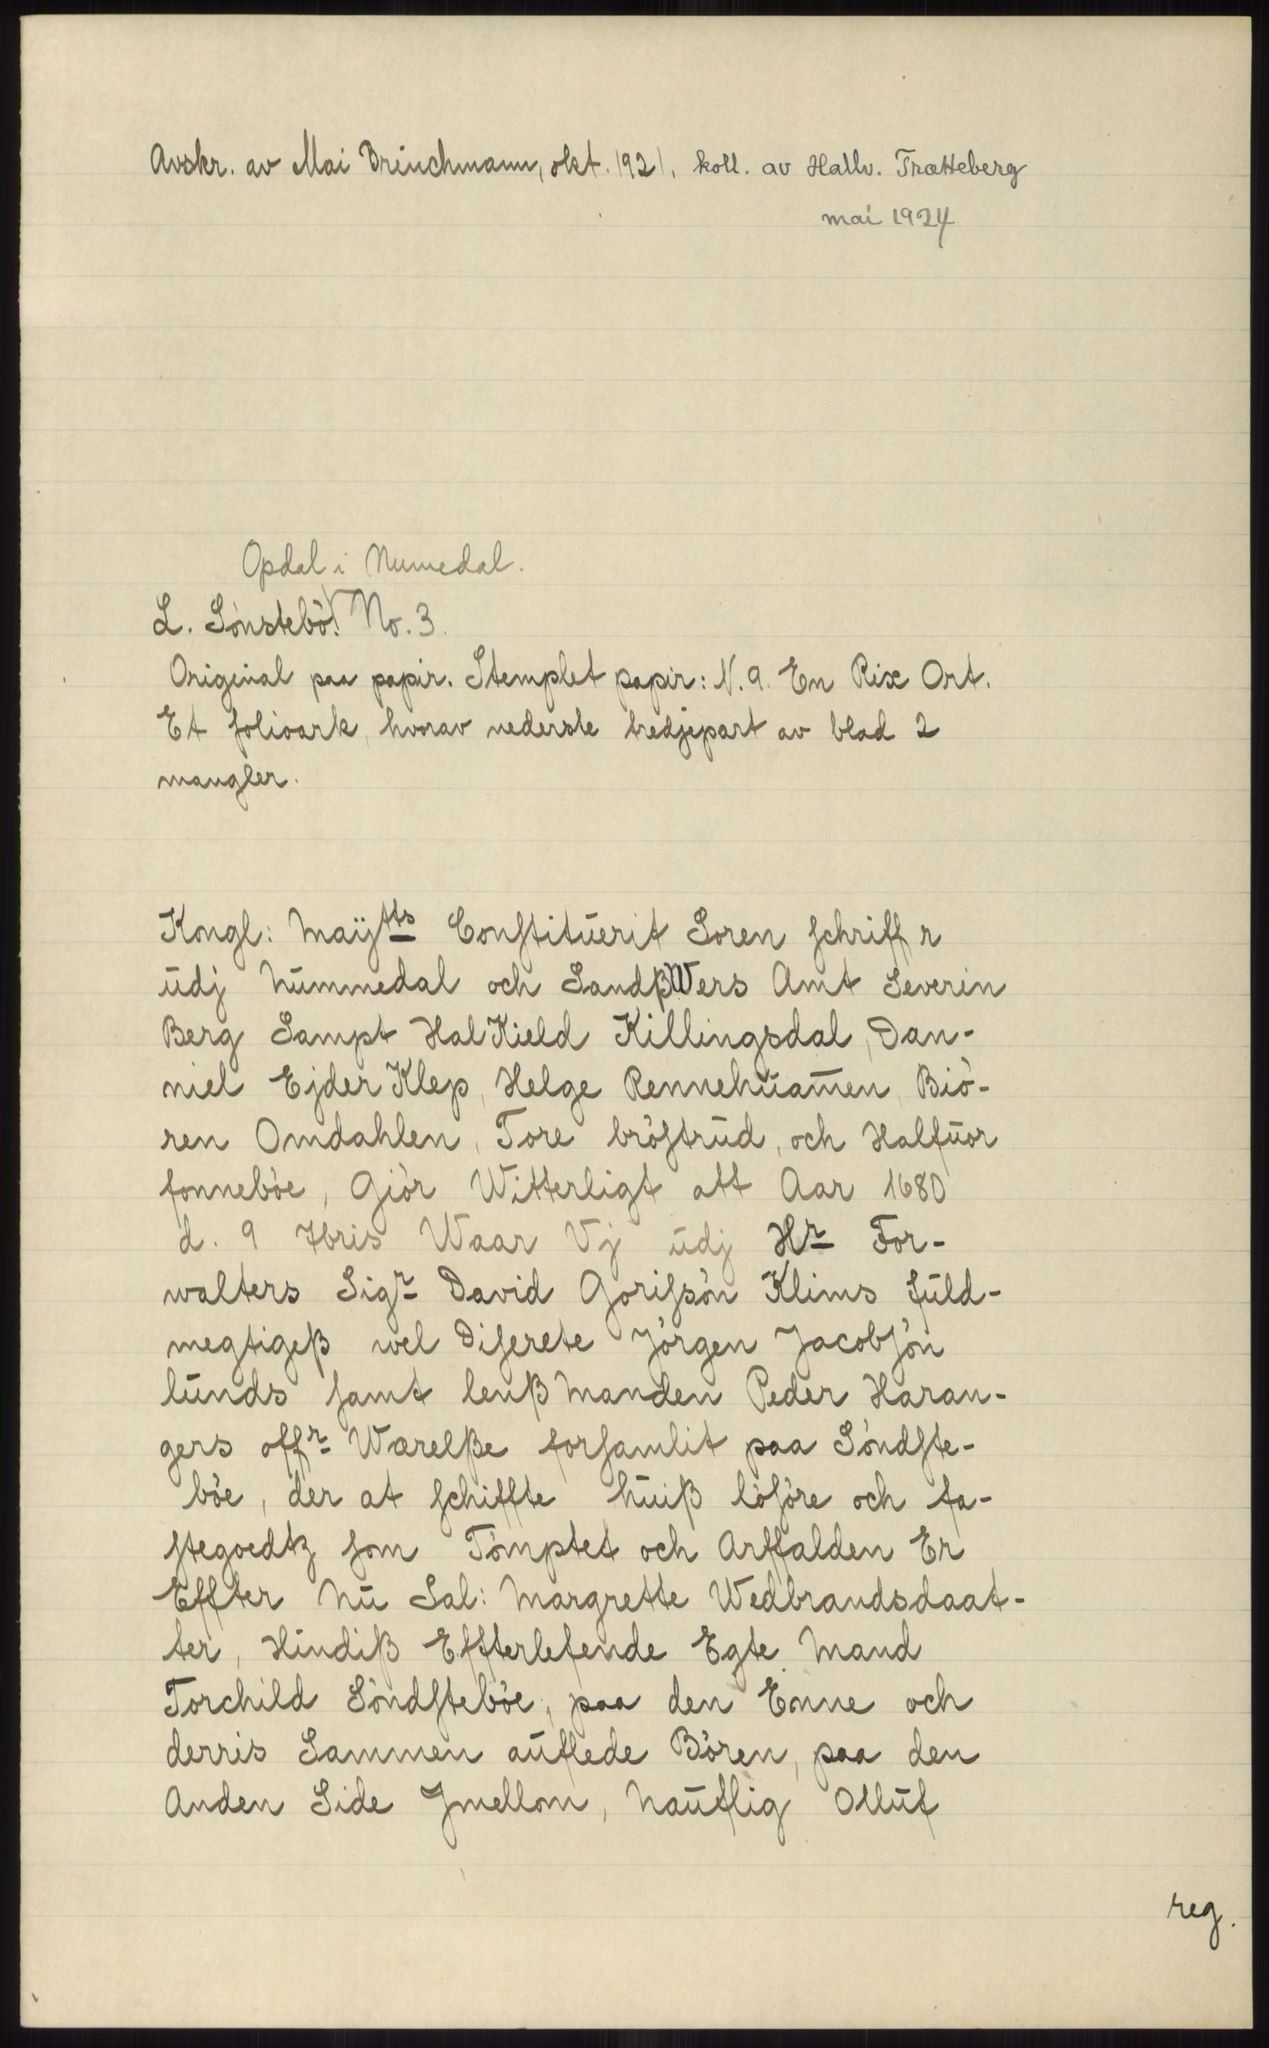 Avskr. av Mai Brinchmann, okt. 1921. koll. av Hallv. Trætteberg
mai 1924
Opdal i Numedal.
L. Sönstebö. No. 3.
Original paa papir. Stemplet papir: N. 9. En Rix Ort.
Et folioark, hvorav nederste tredjepart av blad 2
mangler.
Kongl: Maÿtts Constituerit Soren schriff r
udj Nummedal och SandßWers Amt Severin
Berg Sampt HalKield Killingsdal, Dan-
niel EjderKlep, Helge Pennehuamen, Biö-
ren Omdahlen, Tore bröstrud, och Halfuor
sonneböe, Giör Witterligt att Aar 1680
d. 9 7bris Waar Vj udj Hr For-
walters Sigr David Gorissön Klims fuld-
megtigeß wel Diserete Jörgen Jacobsön
lunds samt lenßmanden Peder Haran-
gers offr Wærelße forsamlit paa Söndste-
böe, der at schiffte huiß lösöre och fa-
stegoedtz som Tömptet och Arffalden Er
Effter Nu Sal: Margrette Wedbrandsdaat-
ter, Hindiß Effterlefende Egte Mand
Torchild Söndsteböe, paa den Enne och
derris Sammen auflede Bören, paa den
Anden Side Jmellom, Nauflig Olluf
reg.